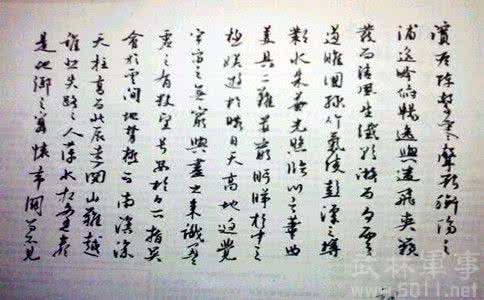 濱雁陣驚寒聲斷衡陽之
浦遙吟俯暢逸興遄飛爽籟
發而清風生纖歌凝而白雲
遏睢園綠竹氣凌彭澤之樽
鄴水朱華光照臨川之筆四
美具二難并窮睇眄於中天
極娛遊於暇日天高地迥覺
宇宙之無窮興盡悲來識盈
虛之有數望長安於日下指吳
會於雲間地勢極而南溟深
天柱高而北辰遠關山難越
誰悲失路之人萍水相逢盡
是他鄉之客懷帝閽而不見
武林軍事
www.5011.net